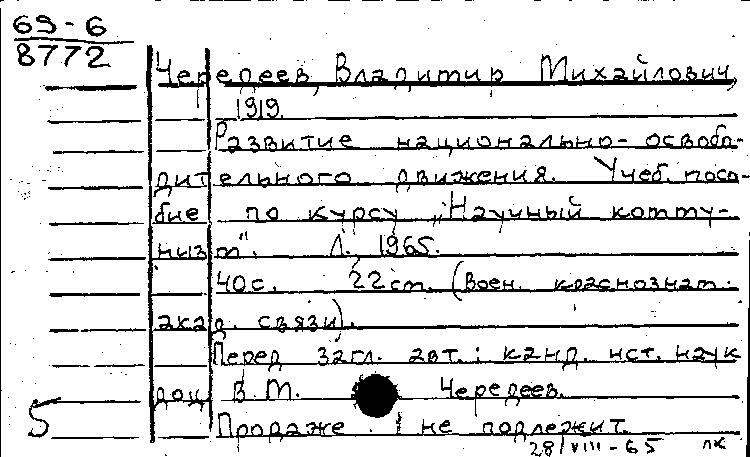 69-6
8772
Чередеев, Владимир Михайлович,
1919.
Развитие национально-освобо-
дительного движения. Учеб. посо-
бие по курсу „Научный комму-
низм". Л., 1965.
40 с. 22 см. (Воен. краснознам.
акад. связи).
Перед загл. авт.: канд. ист. наук
доц. В.М. Чередеев.
Продаже не подлежит.
5
28/VIII-65 пк